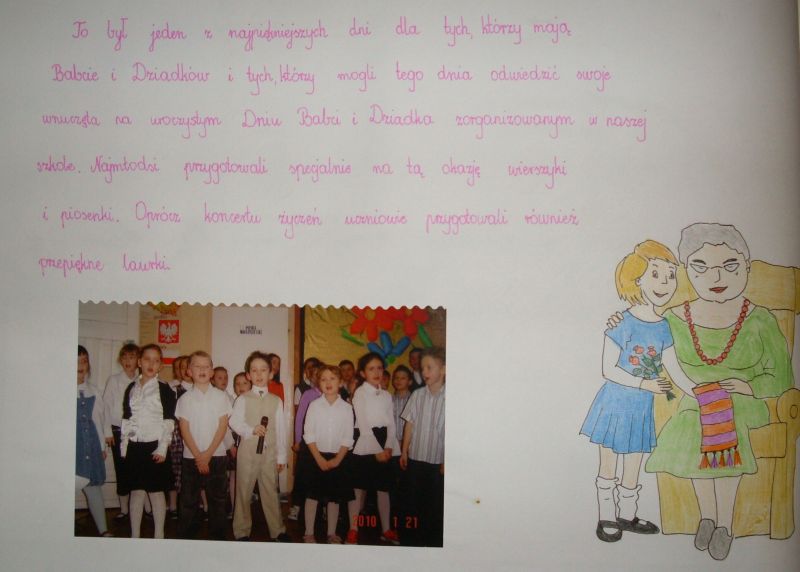 To był jeden z najpiękniejszych dni dla tych, którzy mają
Babcie i Dziadków i tych, którzy mogli tego dnia odwiedzić swoje
wnuczęta na uroczystym Dniu Babci i Dziadka zorganizowanym w naszej
szkole. Najmłodsi przygotowali specjalnie na tą okazję wierszyki
i piosenki. Oprócz koncertu życzeń uczniowie przygotowali również
przepiękne laurki.
2010 1 21